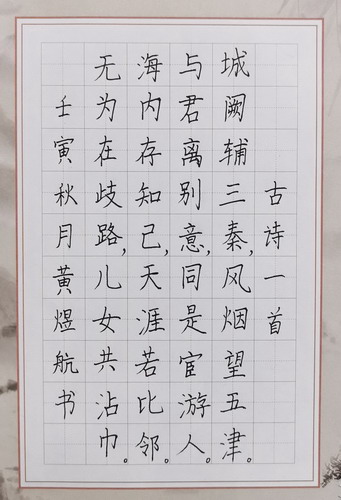 古诗一首
城阙辅三秦,风烟望五津。
与君离别意,同是宦游人。
海内存知己,天涯若比邻。
无为在歧路,儿女共沾巾。
壬寅秋月黄煜航书